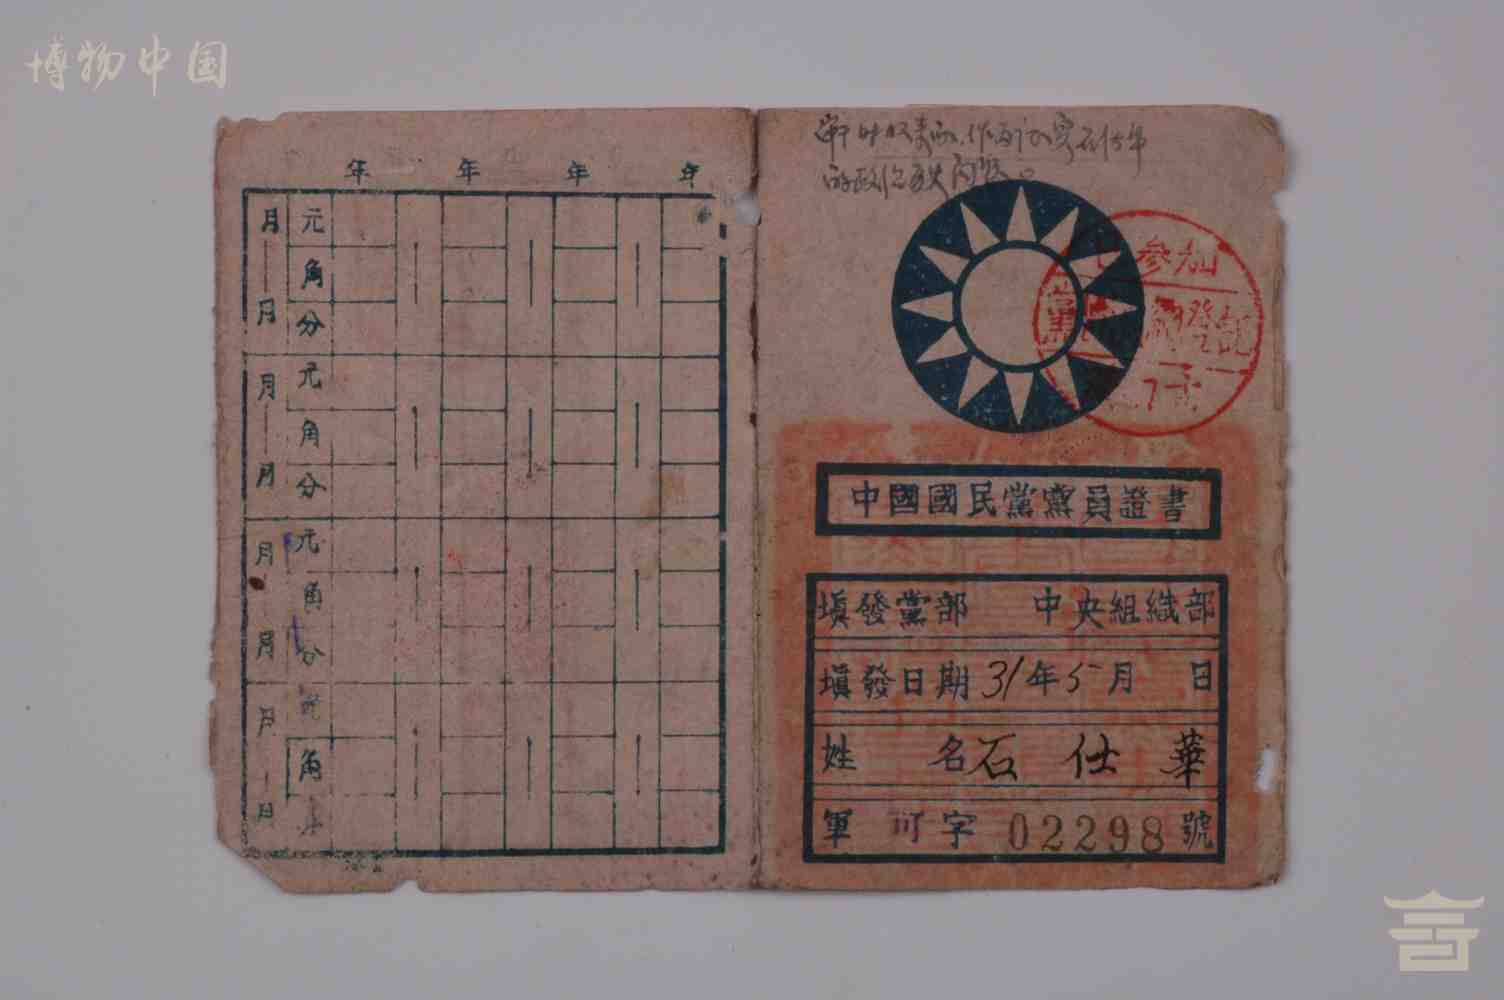 博物中国
年 年 年 年
月
元
角
月
分
月
元
角
月
分
月
元
角
月
分
月
角
月
已参加
登記
中國國民黨黨員證書
填發黨部 中央組織部
填發日期31年5月 日
姓 名石仕華
軍 字 02298號